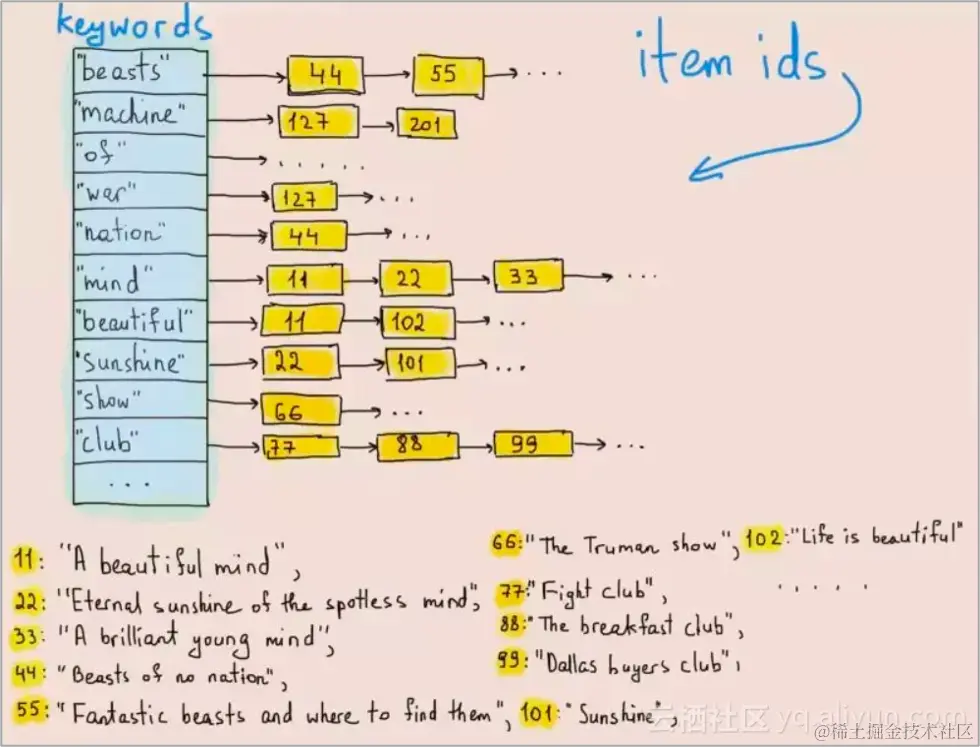 keywords
item ids
"beasts" 44 55 ...
"machine" 127 201
"of" .....
"war" 127 ...
"nation" 44 ...
"mind" 11 22 33 ...
"beautiful" 11 102 ...
"Sunshine" 22 101 ...
"show" 66 ...
"club" 77 88 99 ...
...
11: "A beautiful mind",
22: "Eternal sunshine of the spotless mind",
33: "A brilliant young mind",
44: "Beasts of no nation",
55: "Fantastic beasts and where to find them", 101: "Sunshine",
66: "The Truman show", 102: "Life is beautiful"
77: "Fight club", .....
88: "The breakfast club",
99: "Dallas buyers club",
云栖社区 yq.aliyun.com
@稀土掘金技术社区